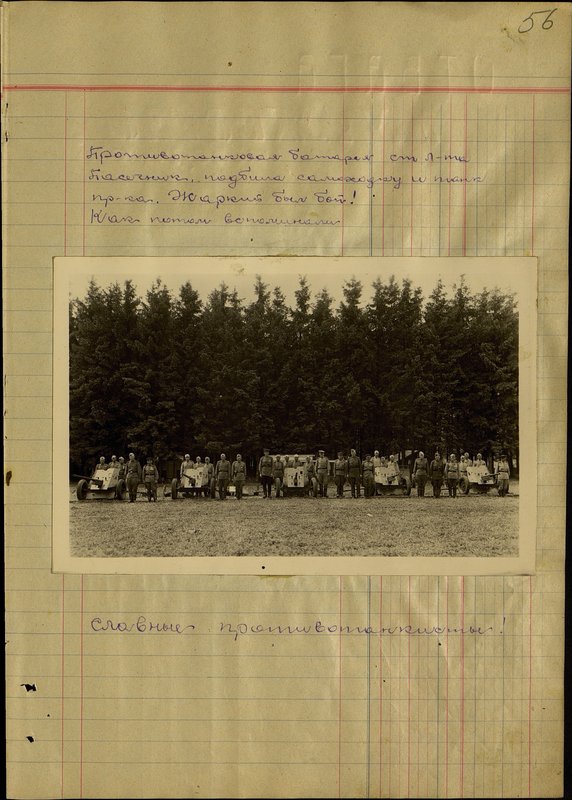 56
Противотанковая батарея ст л-та
Пасечник, подбила самоходку и танк
пр-ка. Жаркий был бой!
Как потом вспоминали
славные противотанкисты!